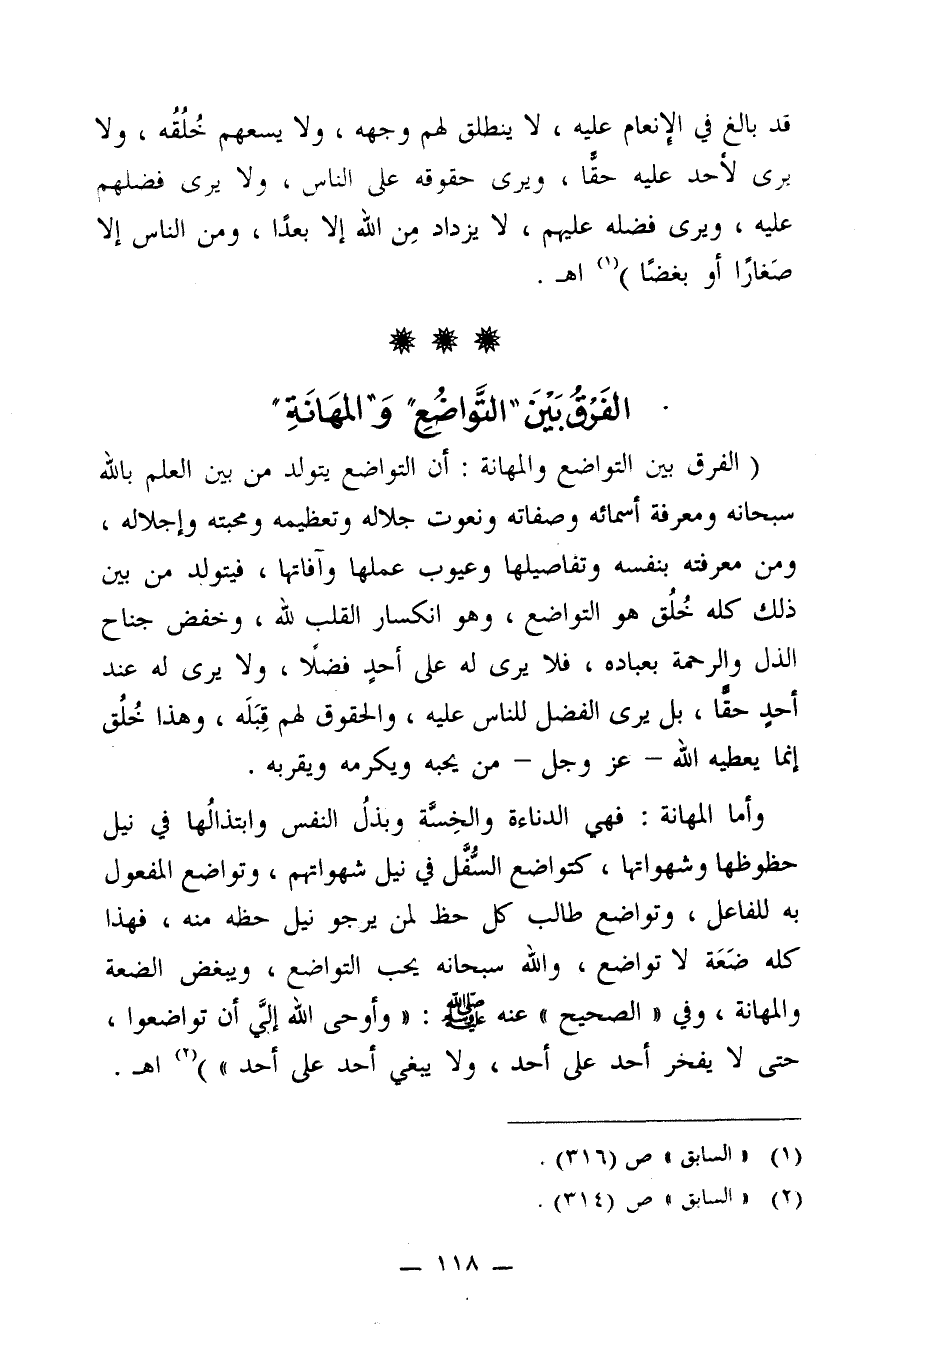 قد بالغ في الإنعام عليه ، لا ينطلق لهم وجهه ، ولا يسعهم خُلُقُه ، ولا
يرى لأحد عليه حقًّا ، ويرى حقوقه على الناس ، ولا يرى فضلهم
عليه ، ويرى فضله عليهم ، لا يزداد مِن الله إلا بعدًا ، ومن الناس إلا
صَغارًا أو بغضًا )(١) اهـ .
الفَرْقُ بَيْنَ "التَّوَاضُعِ" وَ"المَهَانَةِ"
( الفرق بين التواضع والمهانة : أن التواضع يتولد من بين العلم بالله
سبحانه ومعرفة أسمائه وصفاته ونعوت جلاله وتعظيمه ومحبته وإجلاله ،
ومن معرفته بنفسه وتفاصيلها وعيوب عملها وآفاتها ، فيتولد من بين
ذلك كله خُلُق هو التواضع ، وهو انكسار القلب لله ، وخفض جناح
الذل والرحمة بعباده ، فلا يرى له على أحدٍ فضلًا ، ولا يرى له عند
أحدٍ حقًّا ، بل يرى الفضل للناس عليه ، والحقوق لهم قِبَلَه ، وهذا خُلُق
إنما يعطيه الله – عز وجل – من يحبه ويكرمه ويقربه .
وأما المهانة : فهي الدناءة والخِسَّة وبذلُ النفس وابتذالُها في نيل
حظوظها وشهواتها ، كتواضع السُّفَّل في نيل شهواتهم ، وتواضع المفعول
به للفاعل ، وتواضع طالب كل حظ لمن يرجو نيل حظه منه ، فهذا
كله ضَعَة لا تواضع ، والله سبحانه يحب التواضع ، ويبغض الضعة
والمهانة ، وفي « الصحيح » عنه ﷺ : « وأوحى الله إليَّ أن تواضعوا ،
حتى لا يفخر أحد على أحد ، ولا يبغي أحد على أحد » )(٢) اهـ .
(١) « السابق » ص (٣١٦) .
(٢) « السابق » ص (٣١٤) .
— ١١٨ —